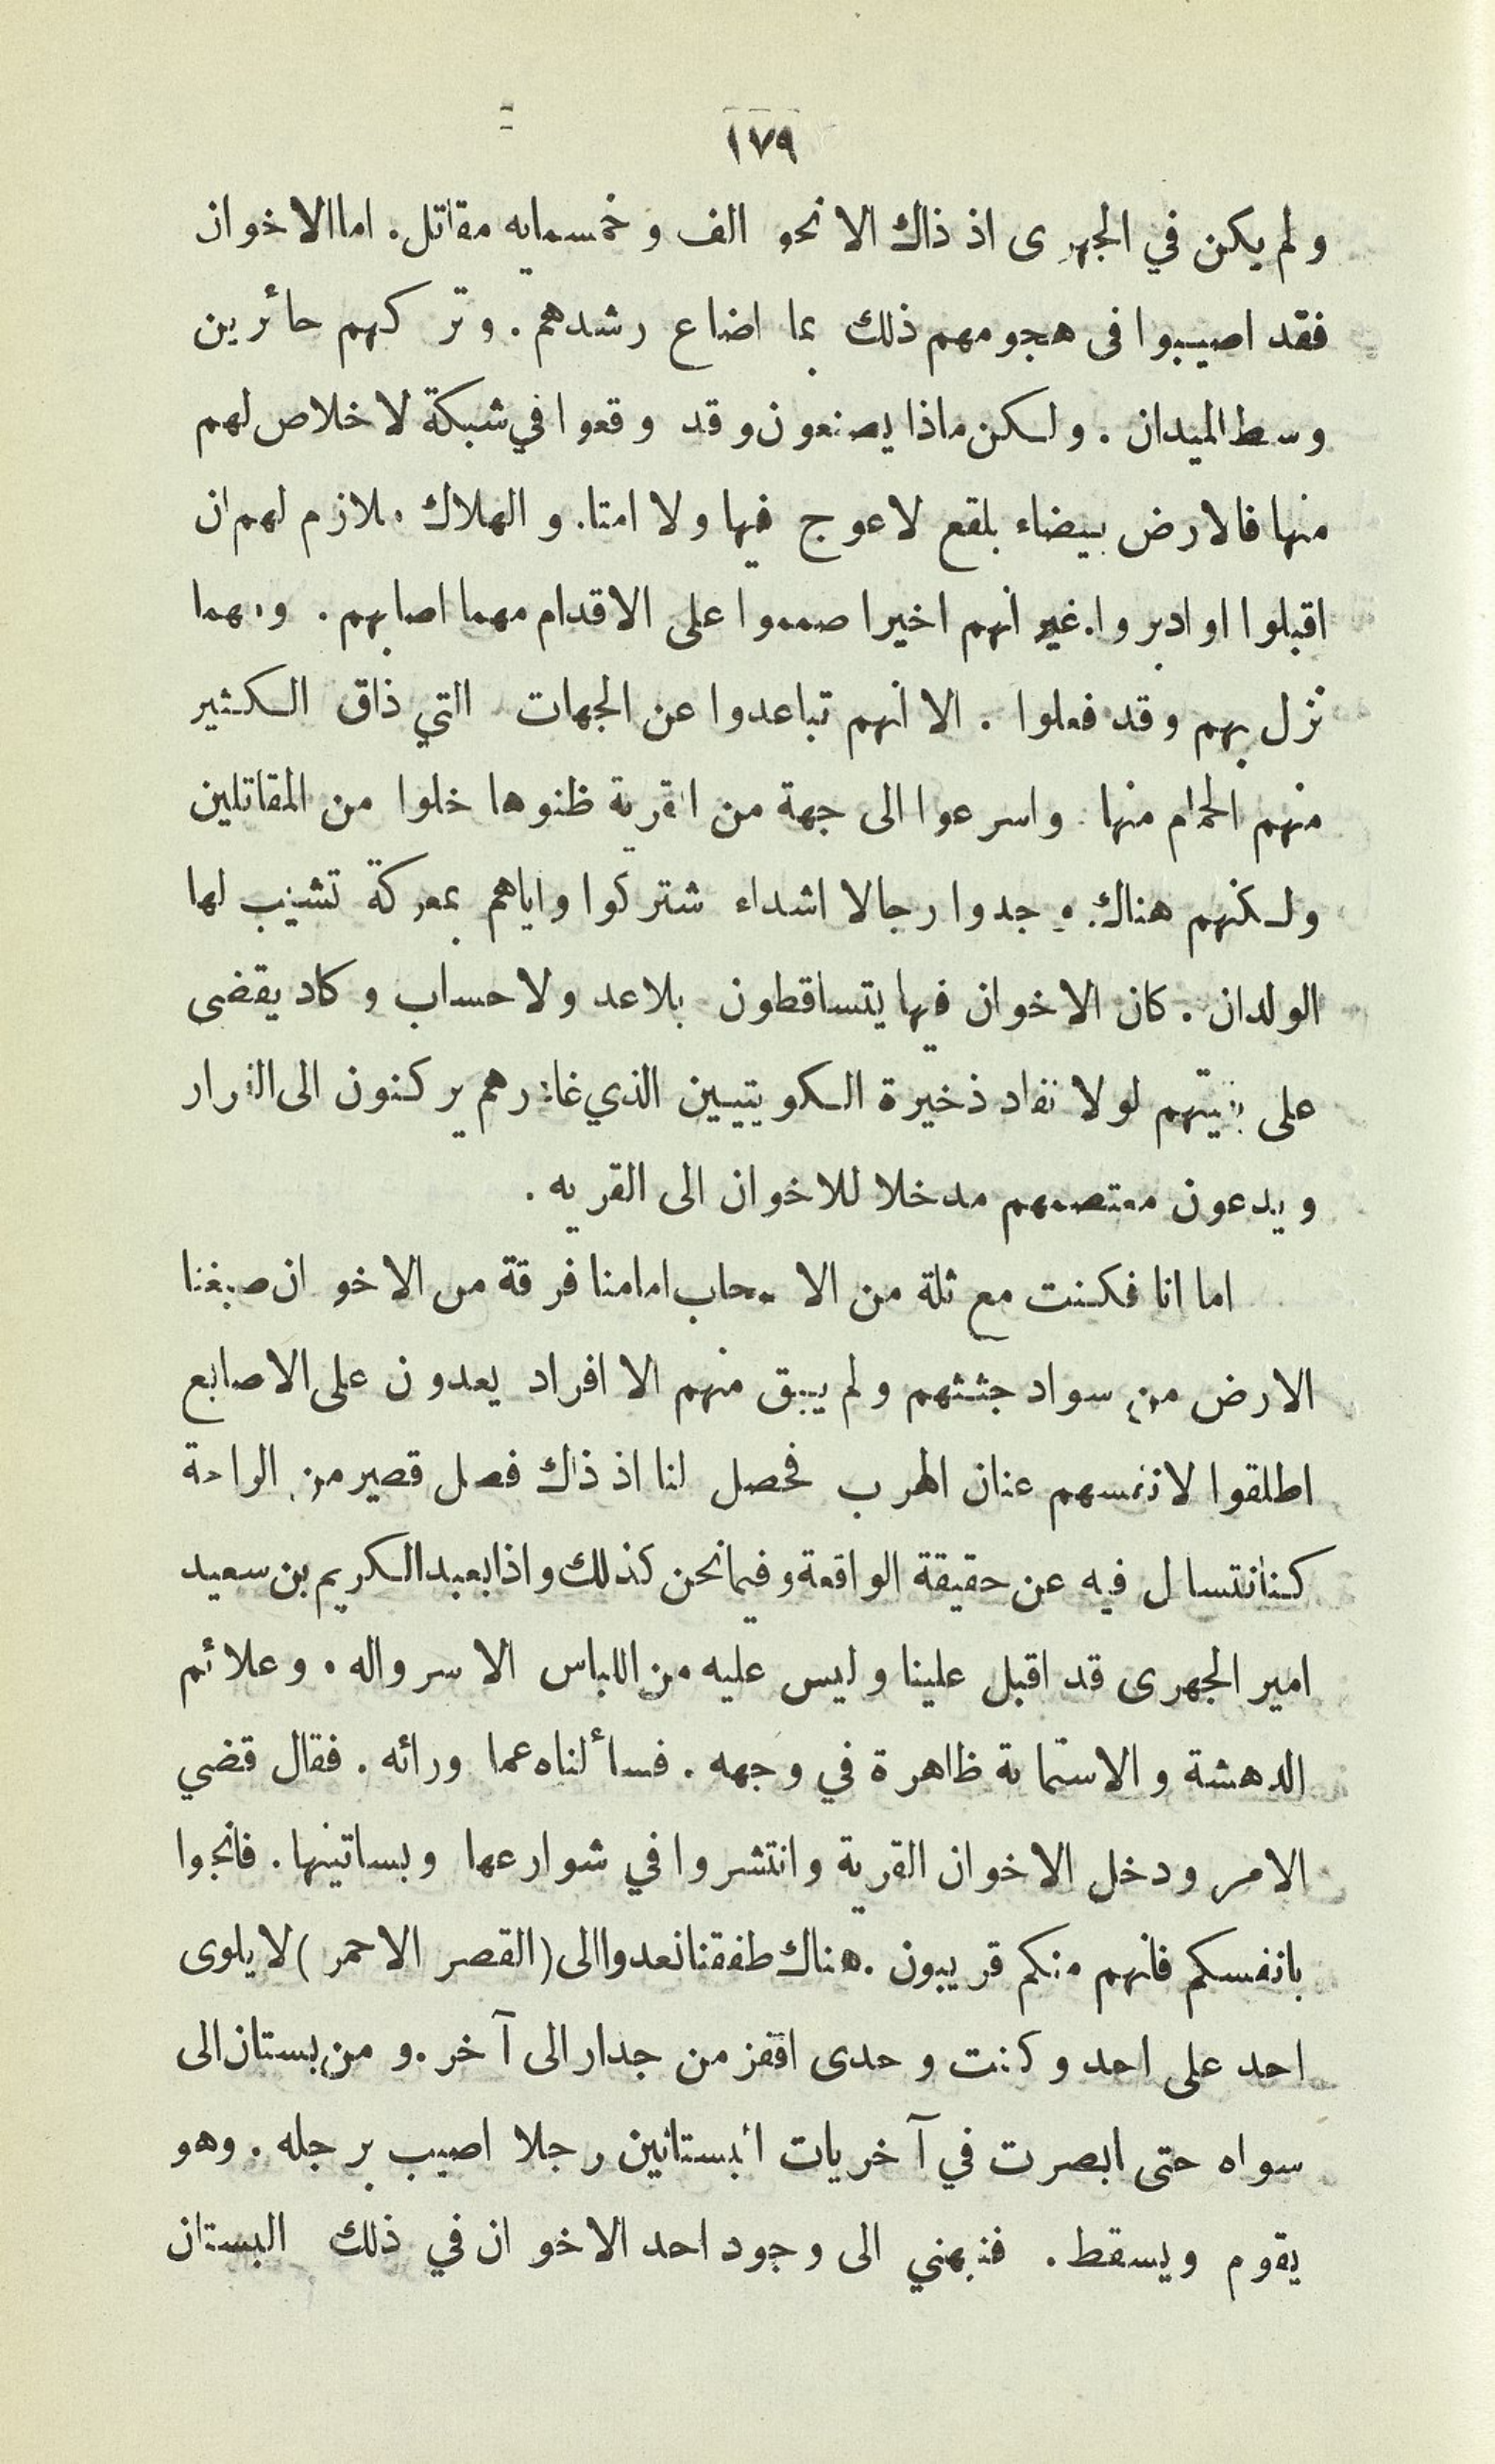 ١٧٩
ولم يكن في الجهرى اذ ذاك الا نحو الف وخمسمايه مقاتل. اما الاخوان
فقد اصيبوا فى هجومهم ذلك بما اضاع رشدهم. وتركهم حائرين
وسط الميدان. ولكن ماذا يصنعون وقد وقعوا في شبكة لا خلاص لهم
منها فالارض بيضاء بلقع لا عوج فيها ولا امتا. والهلاك ملازم لهم ان
اقبلوا او ادبروا. غير انهم اخيرا صمموا على الاقدام مهما اصابهم. ومهما
نزل بهم وقد فعلوا. الا انهم تباعدوا عن الجهات التي ذاق الكثير
منهم الحمام منها واسرعوا الى جهة من القرية ظنوها خلوا من المقاتلين
ولكنهم هناك وجدوا رجالا اشداء شتركوا واياهم بمعركة تشيب لها
الولدان. كان الاخوان فيها يتساقطون بلا عد ولا حساب وكاد يقضى
على بقيتهم لولا نفاد ذخيرة الكويتيين الذي غادرهم يركنون الى الفرار
ويدعون معتصمهم مدخلا للاخوان الى القريه.
اما انا فكنت مع ثلة من الاصحاب امامنا فرقة من الاخوان صبغنا
الارض من سواد جثثهم ولم يبق منهم الا افراد يعدون على الاصابع
اطلقوا لانفسهم عنان الهرب فحصل لنا اذ ذاك فصل قصير من الراحة
كنا نتسال فيه عن حقيقة الواقعة وفيما نحن كذلك واذا بعبد الكريم بن سعيد
امير الجهرى قد اقبل علينا وليس عليه من اللباس الا سرواله. وعلائم
الدهشة والاستماتة ظاهرة في وجهه. فسألناه عما ورائه. فقال قضي
الامر ودخل الاخوان القرية وانتشروا في شوارعها وبساتينها. فانجوا
بانفسكم فانهم منكم قريبون. هناك طفقنا نعدوا الى (القصر الاحمر) لا يلوى
احد على احد وكنت وحدى اقفز من جدار الى آخر. ومن بستان الى
سواه حتى ابصرت في آخريات البستانين رجلا اصيب برجله. وهو
يقوم ويسقط. فنبهني الى وجود احد الاخوان في ذلك البستان